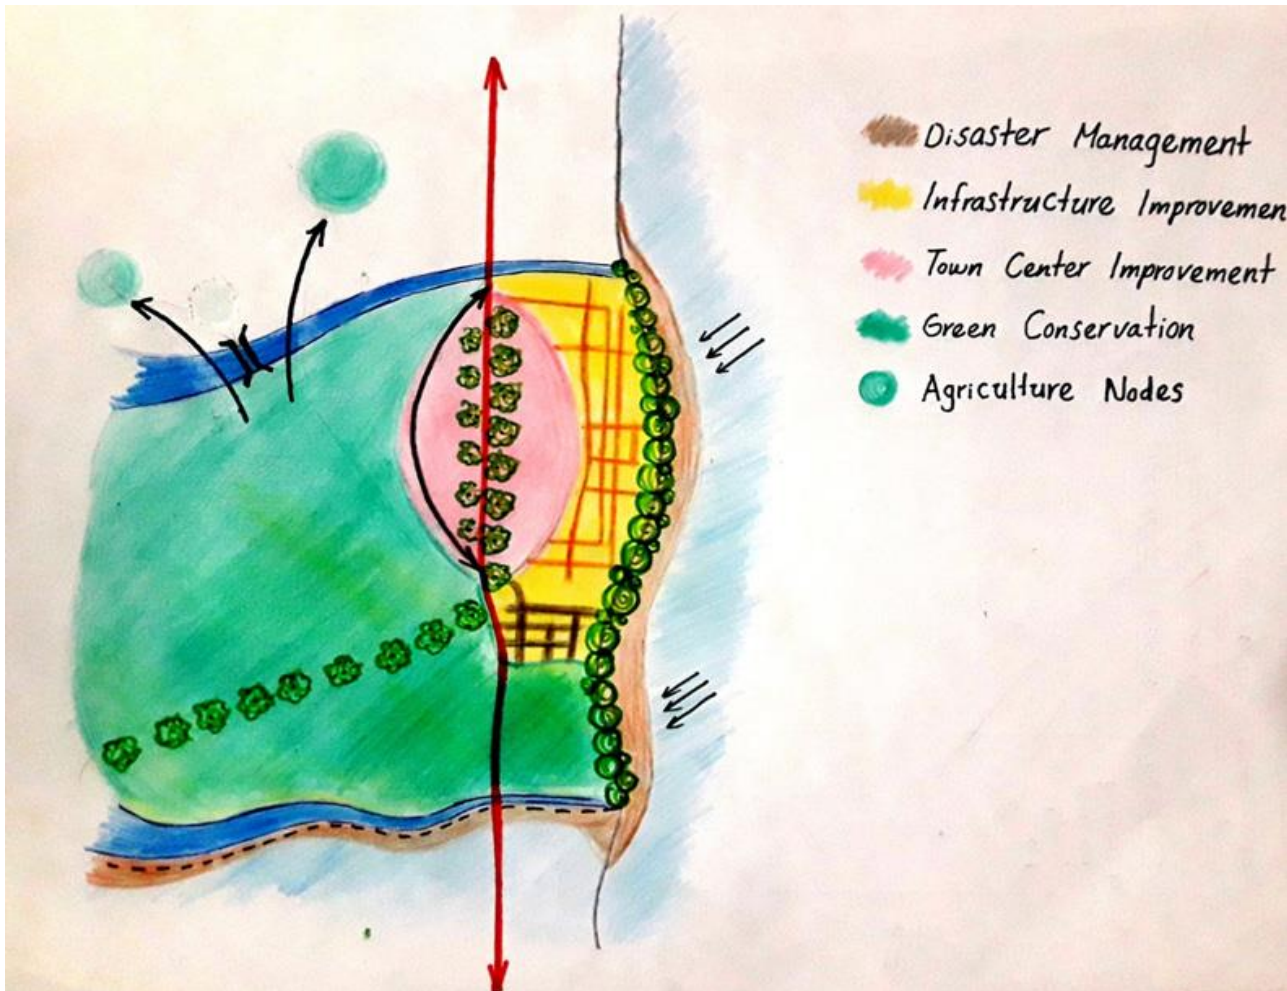 Disaster Management
Infrastructure Improvemen
Town Center Improvement
Green Conservation
Agriculture Nodes